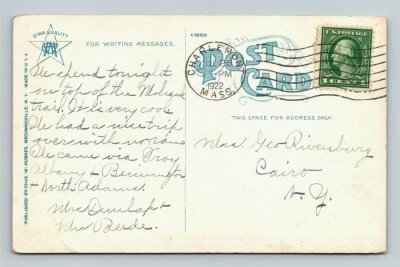 STAR QUALITY
FOR WRITING MESSAGES.
A-88806
POST CARD
CHARLEMONT
PM
1922
MASS.
U.S. POSTAGE
THIS SPACE FOR ADDRESS ONLY.
We spend tonight
on top of the Mohawk
trail. It is very cool
We had a nice trip
over with no rain
We came via Troy
Albany - Bennington
- North Adams.
Mrs Dunlap &
Mrs
Mrs. Geo
Cairo
N. Y.
PUBLISHED BY CHAS. W. HUGHES, MECHANICVILLE, N. Y. MADE IN U.S.A.